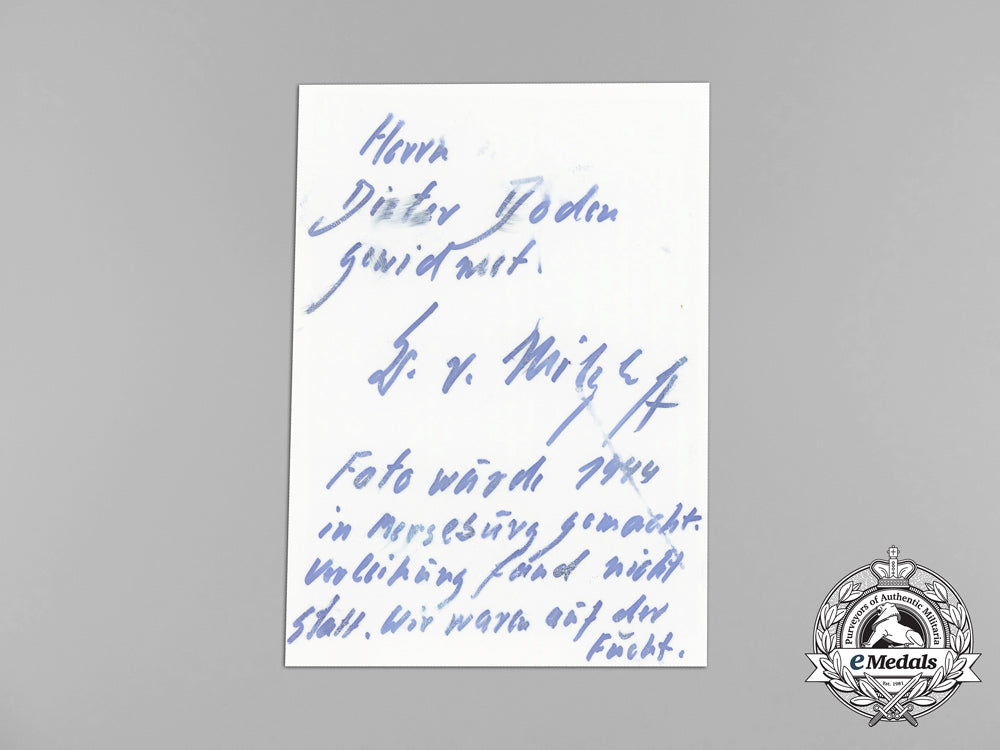 Herrn
Dieter Boden
gewidmet.
D. v.
Foto würde 1944
in Merseburg gemacht.
Verleihung fand nicht
statt. Wir waren auf der
Fucht.
Purveyors of Authentic Militaria
eMedals
Est. 1981